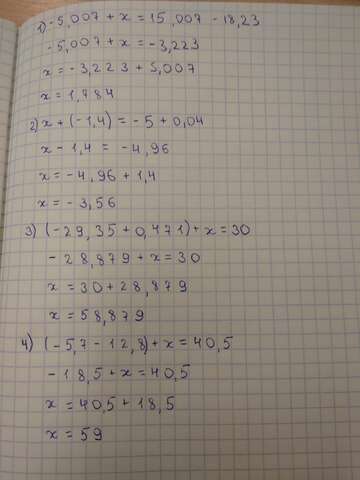 1) -5,007 + x = 15,007 - 18,23
-5,007 + x = -3,223
x = -3,223 + 5,007
x = 1,784
2) x + (-1,4) = -5 + 0,04
x - 1,4 = -4,96
x = -4,96 + 1,4
x = -3,56
3) (-29,35 + 0,471) + x = 30
-28,879 + x = 30
x = 30 + 28,879
x = 58,879
4) (-5,7 - 12,8) + x = 40,5
-18,5 + x = 40,5
x = 40,5 + 18,5
x = 59